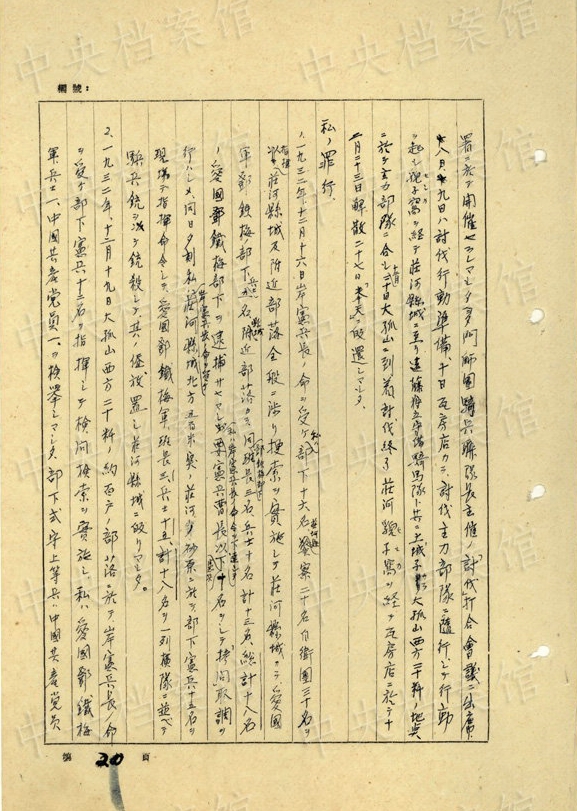 編號：
署ニ於テ開催セラレマシタ多門師團騎兵聯隊長主催ノ「討伐」打合會議ニ出席、
十八日九日ハ討伐行動準備、十日瓦房店カラ討伐主力部隊ニ隨行シテ行動
ヲ起シ貔子窩ヲ経テ莊河縣城ニ至リ騎馬隊ト共ニ土城子大孤山西方二十粁ノ地点
ニ於テ主力部隊ニ合シ二十日大孤山ニ到着討伐終了莊河貔子窩ヲ経テ瓦房店ニ於テ十
二月二十三日解散二十七日「奉天」ニ皈還シマシタ
私ノ罪行
1、一九三二年十二月十六日岸憲兵長ノ命ヲ受ケ私ハ部下十六名警察二十名自衛團三十名ヲ
指揮シ莊河縣城及附近部落全般ニ渉リ捜索ヲ實施シテ莊河縣城カラ愛國
軍鄧鉄梅ノ部下兵士名附近部落カラ同班長三名兵士十名計十三名、総計十八名
ノ愛國鄧鐵梅部下ヲ逮捕サセマシタ憲兵曹長以下十名ヲシテ拷問取調ヲ
行ハシメ同日夕刻私ハ莊河縣城北方百米突ノ莊河ノ砂原ニ於テ部下憲兵十五名ヲ
現場ニテ指揮命令シテ愛國鄧鐵梅軍班長三、兵士十五、計十八名ヲ一列橫隊ニ並ベテ
騎兵銃ヲ以テ銃殺シテ其ノ儘放置シ莊河縣城ニ皈リマシタ。
2、一九三二年十二月十九日大孤山西方二十粁ノ約百戸ノ部落ニ於テ岸憲兵長ノ命
ヲ受ケ部下憲兵十二名ヲ指揮シテ檢問捜索ヲ實施シ、私ハ愛國鄧鐵梅
軍兵士一、中國共產党員一、ヲ檢挙シマシタ部下式守上等兵ハ中國共產党員
第 20 頁
中央档案馆